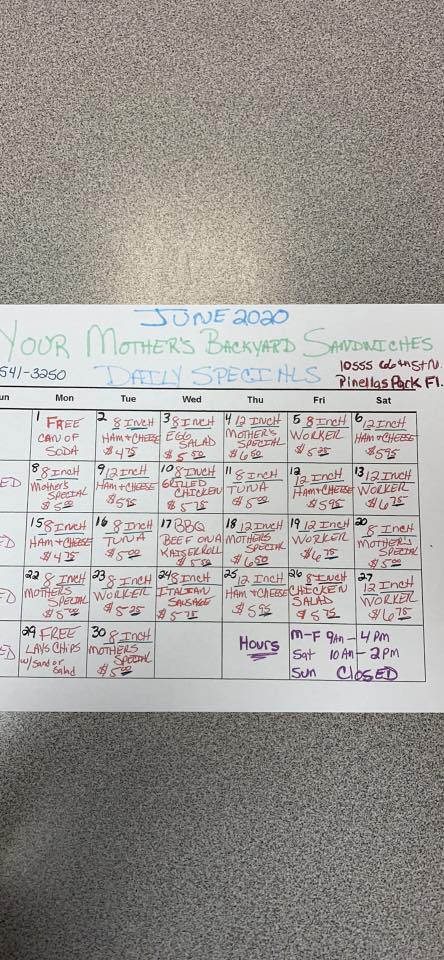 JUNE 2020
YOUR MOTHER'S BACKYARD SANDWICHES
541-3250 DAILY SPECIALS 10555 66th St N.
Pinellas Park Fl.
un Mon Tue Wed Thu Fri Sat
1 FREE CAN OF SODA
2 8 INCH HAM+CHEESE $4.75
3 8 INCH EGG SALAD $5.50
4 12 INCH MOTHER'S SPECIAL $6.50
5 8 INCH WORKER $5.25
6 12 INCH HAM+CHEESE $5.95
ED
8 8 INCH Mother's SPECIAL $5.00
9 12 INCH HAM+CHEESE $5.95
10 8 INCH GRILLED CHICKEN $5.75
11 8 INCH TUNA $5.00
12 12 INCH HAM+CHEESE $5.95
13 12 INCH WORKER $6.75
ED
15 8 INCH HAM+CHEESE $4.75
16 8 INCH TUNA $5.00
17 BBQ BEEF ON A KAISER ROLL $5.00
18 12 INCH MOTHERS SPECIAL $6.50
19 12 INCH WORKER $6.75
20 8 INCH MOTHER'S SPECIAL $5.00
ED
22 8 INCH MOTHERS SPECIAL $5.00
23 8 INCH WORKER $5.25
24 8 INCH ITALIAN SAUSAGE $5.75
25 12 INCH HAM+CHEESE $5.95
26 8 INCH CHICKEN SALAD $5.75
27 12 INCH WORKER $6.75
SED
29 FREE LAYS CHIPS w/Sand or Salad
30 8 INCH MOTHERS SPECIAL $5.00
Hours
M-F 9AM-4PM
Sat 10AM-2PM
Sun CLOSED